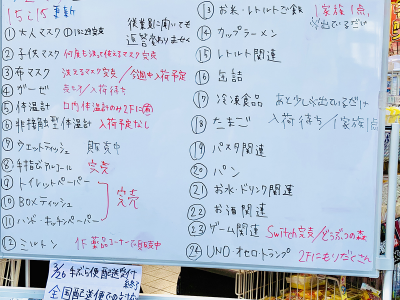 15:15 更新
従業員に聞いても
返答変わりません
① 大人マスク ①13:25完売
② 子供マスク 何度も洗って使えるマスク完売
③ 布マスク 洗えるマスク完売/今週中入荷予定
④ ガーゼ 売切/入荷待ち
⑤ 体温計 口内体温計のみ2Fに有
⑥ 非接触型体温計 入荷予定なし
⑦ ウェットティッシュ 販売中
⑧ 手指ピアルコール 完売
⑨ トイレットペーパー
⑩ BOXティッシュ
⑪ ハンド・キッチンペーパー
完売
⑫ ミルトン 1F薬品コーナーで販売中
⑬ お米・レトルトご飯 1家族1点
※出ているだけ
⑭ カップラーメン
⑮ レトルト関連
⑯ 缶詰
⑰ 冷凍食品 あと少し※出ているだけ
⑱ たまご 入荷待ち/1家族1点
⑲ パスタ関連
⑳ パン
㉑ お水・ドリンク関連
㉒ お酒関連
㉓ ゲーム関連 Switch完売/どうぶつの森
㉔ UNO・オセロ・トランプ 2Fにもりだくさん
3/26 手ぶら便配送受付
終了
全国配送便の